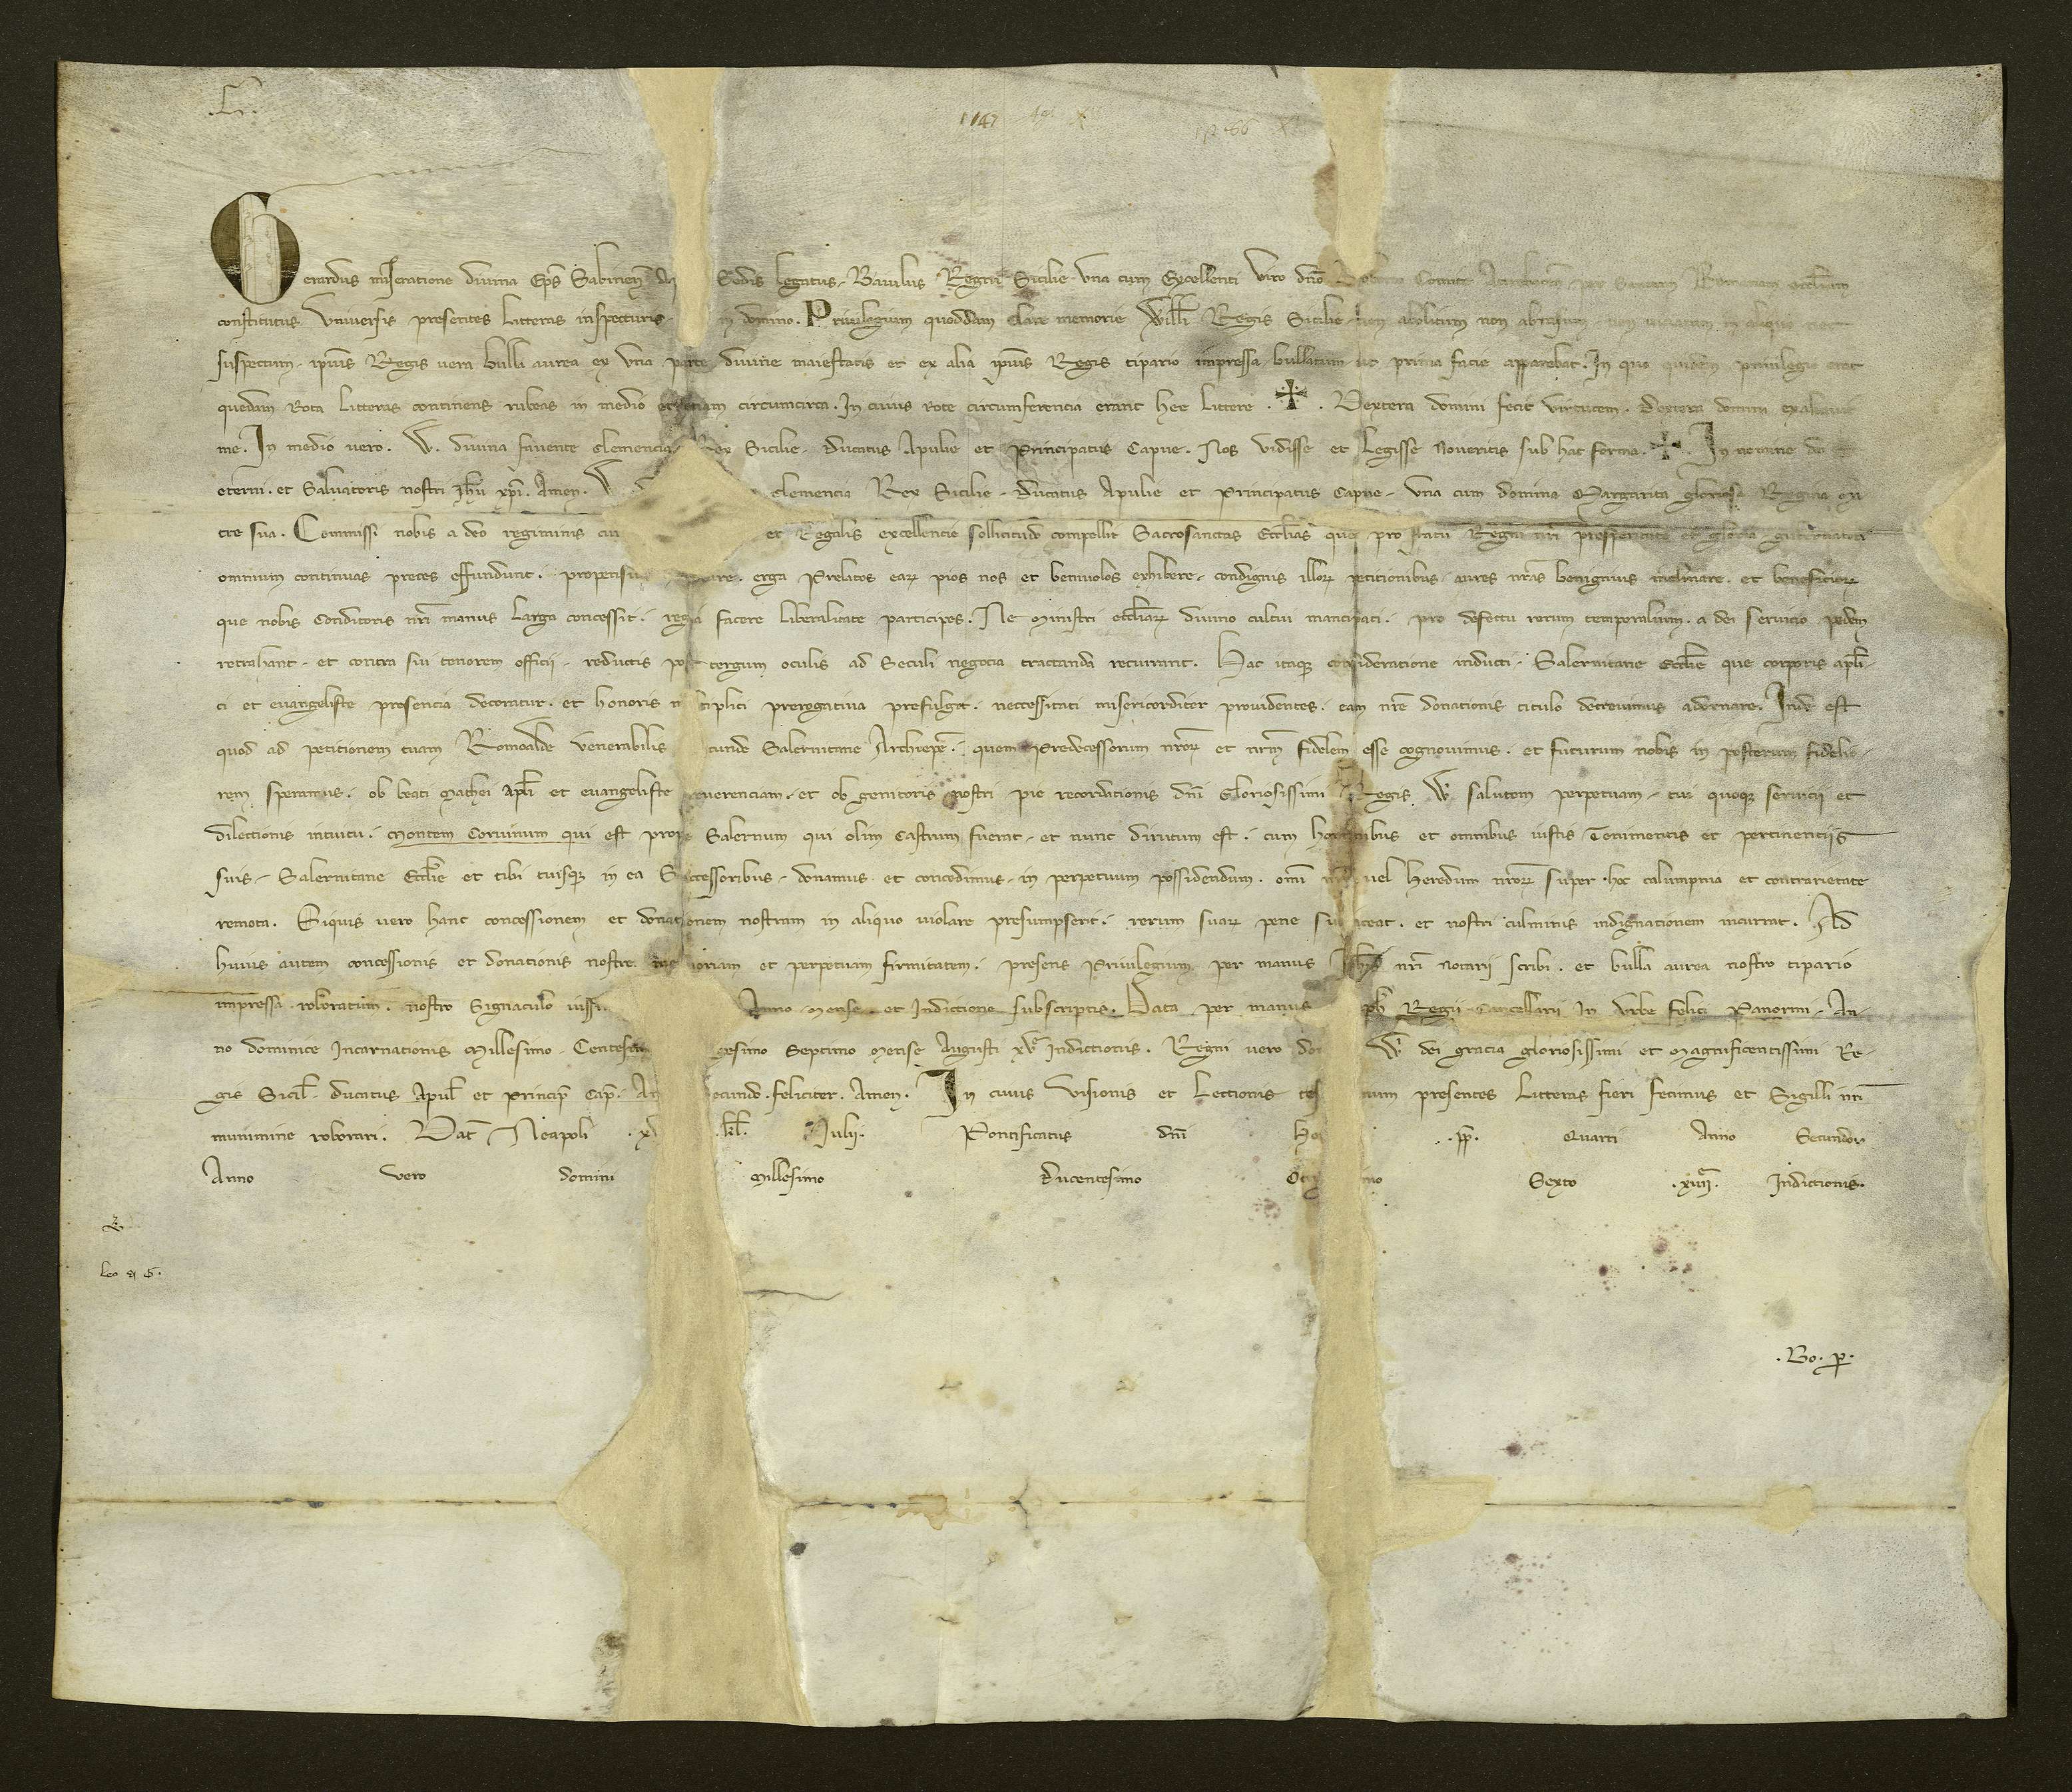 .G.
1147
1266
Gerardus miseratione divina Ep̄s Sabineñ Sedis legatus, Baiulus Regni Sicilie una cum Excellenti viro dn̄o Comite per Romanam ecclesiam
constitutus universis presentes Litteras inspecturis in domino. Privilegium quoddam clare memorie Will̄i Regis Sicilie non abolitum non abrasum non viciatum in aliquo nec
suspectum. ip̄ius Regis vera bulla aurea ex una parte divine maiestatis et ex alia ip̄ius Regis tipario impressa bullatum ut prima facie apparebat. In quo quidem privilegio erat
quedam Rota Litteras continens rubeas in medio et etiam circumcirca. In cuius rote circumferencia erant hec littere. ✠. Dextera domini fecit virtutem. dextera domini exaltavit
me. In medio vero. W. divina favente clemencia Rex Sicilie. ducatus Apulie et Principatus Capue. Nos vidisse et legisse noveritis sub hac forma. ✠. In nomine dei
eterni. et Salvatoris nostri ih̄u xp̄i. Amen. W clemencia Rex Sicilie. ducatus Apulie et Principatus Capue. una cum domina Margarita gloriosa Regina
tre sua. Commissi nobis a deo regiminis et Regalis excellencie sollicitudo compellit Sacrosanctas Eccl̄ias que pro statu Regni nr̄i prosperitate et gloria
omnium continuas preces effundunt. erga Prelatos earꝝ pios nos et benivolos exhibere. condignis illorꝝ petitionibus. aures nr̄as benignius inclinare. et beneficiorꝝ
que nobis Conditoris nr̄i manus larga concessit. regia facere liberalitate participes. Ne ministri eccl̄iarꝝ divino cultui mancipati. pro defectu rerum temporalium. a dei servicio pedem
retrahant. et contra sui tenorem officii. reductis post tergum oculis ad Seculi negocia tractanda recurrant. Hac itaqꝫ consideratione inducti. Salernitane Eccl̄ie que corporis apl̄i-
ci et evangeliste presencia decoratur. et honoris m tiplici prerogativa prefulget. neccessitati misericorditer providentes. eam nr̄e donationis titulo decrevimus adornare. Inde est
quod ad petitionem tuam Romoalde venerabilis cunde Salernitane Archiep̄e. quem Predecessorum nr̄orꝝ et nr̄m fidelem esse cognovimus. et futurum nobis in posterum fidelio-
rem speramus. ob beati Mathei apl̄i et evangeliste reverenciam. et ob genitoris nostri pie recordationis dn̄i Gloriosissimi Regis W salutem perpetuam. tui quoqꝫ servicii et
dilectionis intuitu. Montem Corvinum qui est prope Salernum qui olim Castrum fuerat. et nunc dirutum est. cum hominibus et omnibus iustis Tenimentis et pertinenciis
suis. Salernitane Eccl̄ie et tibi tuisqꝫ in ea Successoribus. donamus et concedimus. in perpetuum possidendum. om̄i nr̄a vel heredum nr̄orꝝ super hoc calumpnia et contrarietate
remota. Siquis vero hanc concessionem et donationem nostram in aliquo violare presumpserit. rerum suarꝝ pene subiaceat. et nostri culminis indignationem incurrat. Ad
huius autem concessionis et donationis nostre. memoriam et perpetuam firmitatem. presens Privilegium per manus nr̄i Notarii scribi. et bulla aurea nostro tipario
impressa roboratum. nostro Signaculo iussi Anno mense et Indictione subscriptis. Data per manus Regii Cancellarii In Urbe felici Panormi. An-
no dominice Incarnationis Millesimo. Centesi gesimo Septimo mense Augusti xv̄ Indictionis. Regni vero do W dei gracia gloriosissimi et magnificentissimi Re-
gis Sicil̄. ducatus Apul̄ et Princip̄ Cap̄. An ecundo. feliciter. Amen. In cuius visionis et lectionis tes nium presentes Litteras fieri fecimus et Sigilli nr̄i
munimine roborari. Dat̄ Neapoli .x kl̄. Iulii. Pontificatus dn̄i Ho .pp̄. Quarti Anno Secundo.
Anno vero domini Millesimo ducentesimo Oct mo Sexto .xiiii. Indictionis.
Leo
.Bo. p̄.